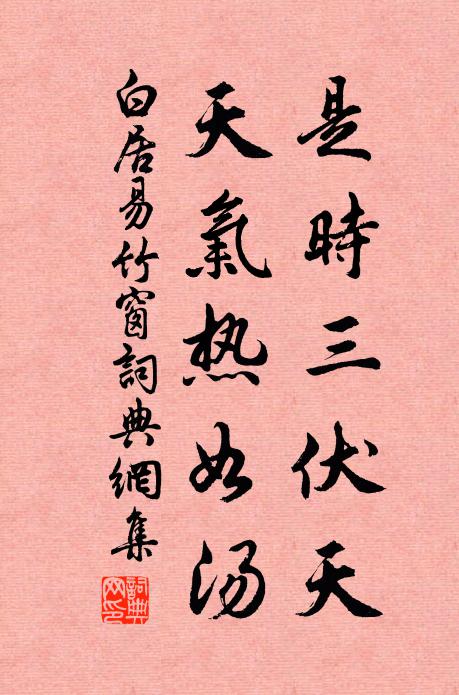 是時三伏天
天氣热如湯
白居易竹窗詞典網集
詞典網印